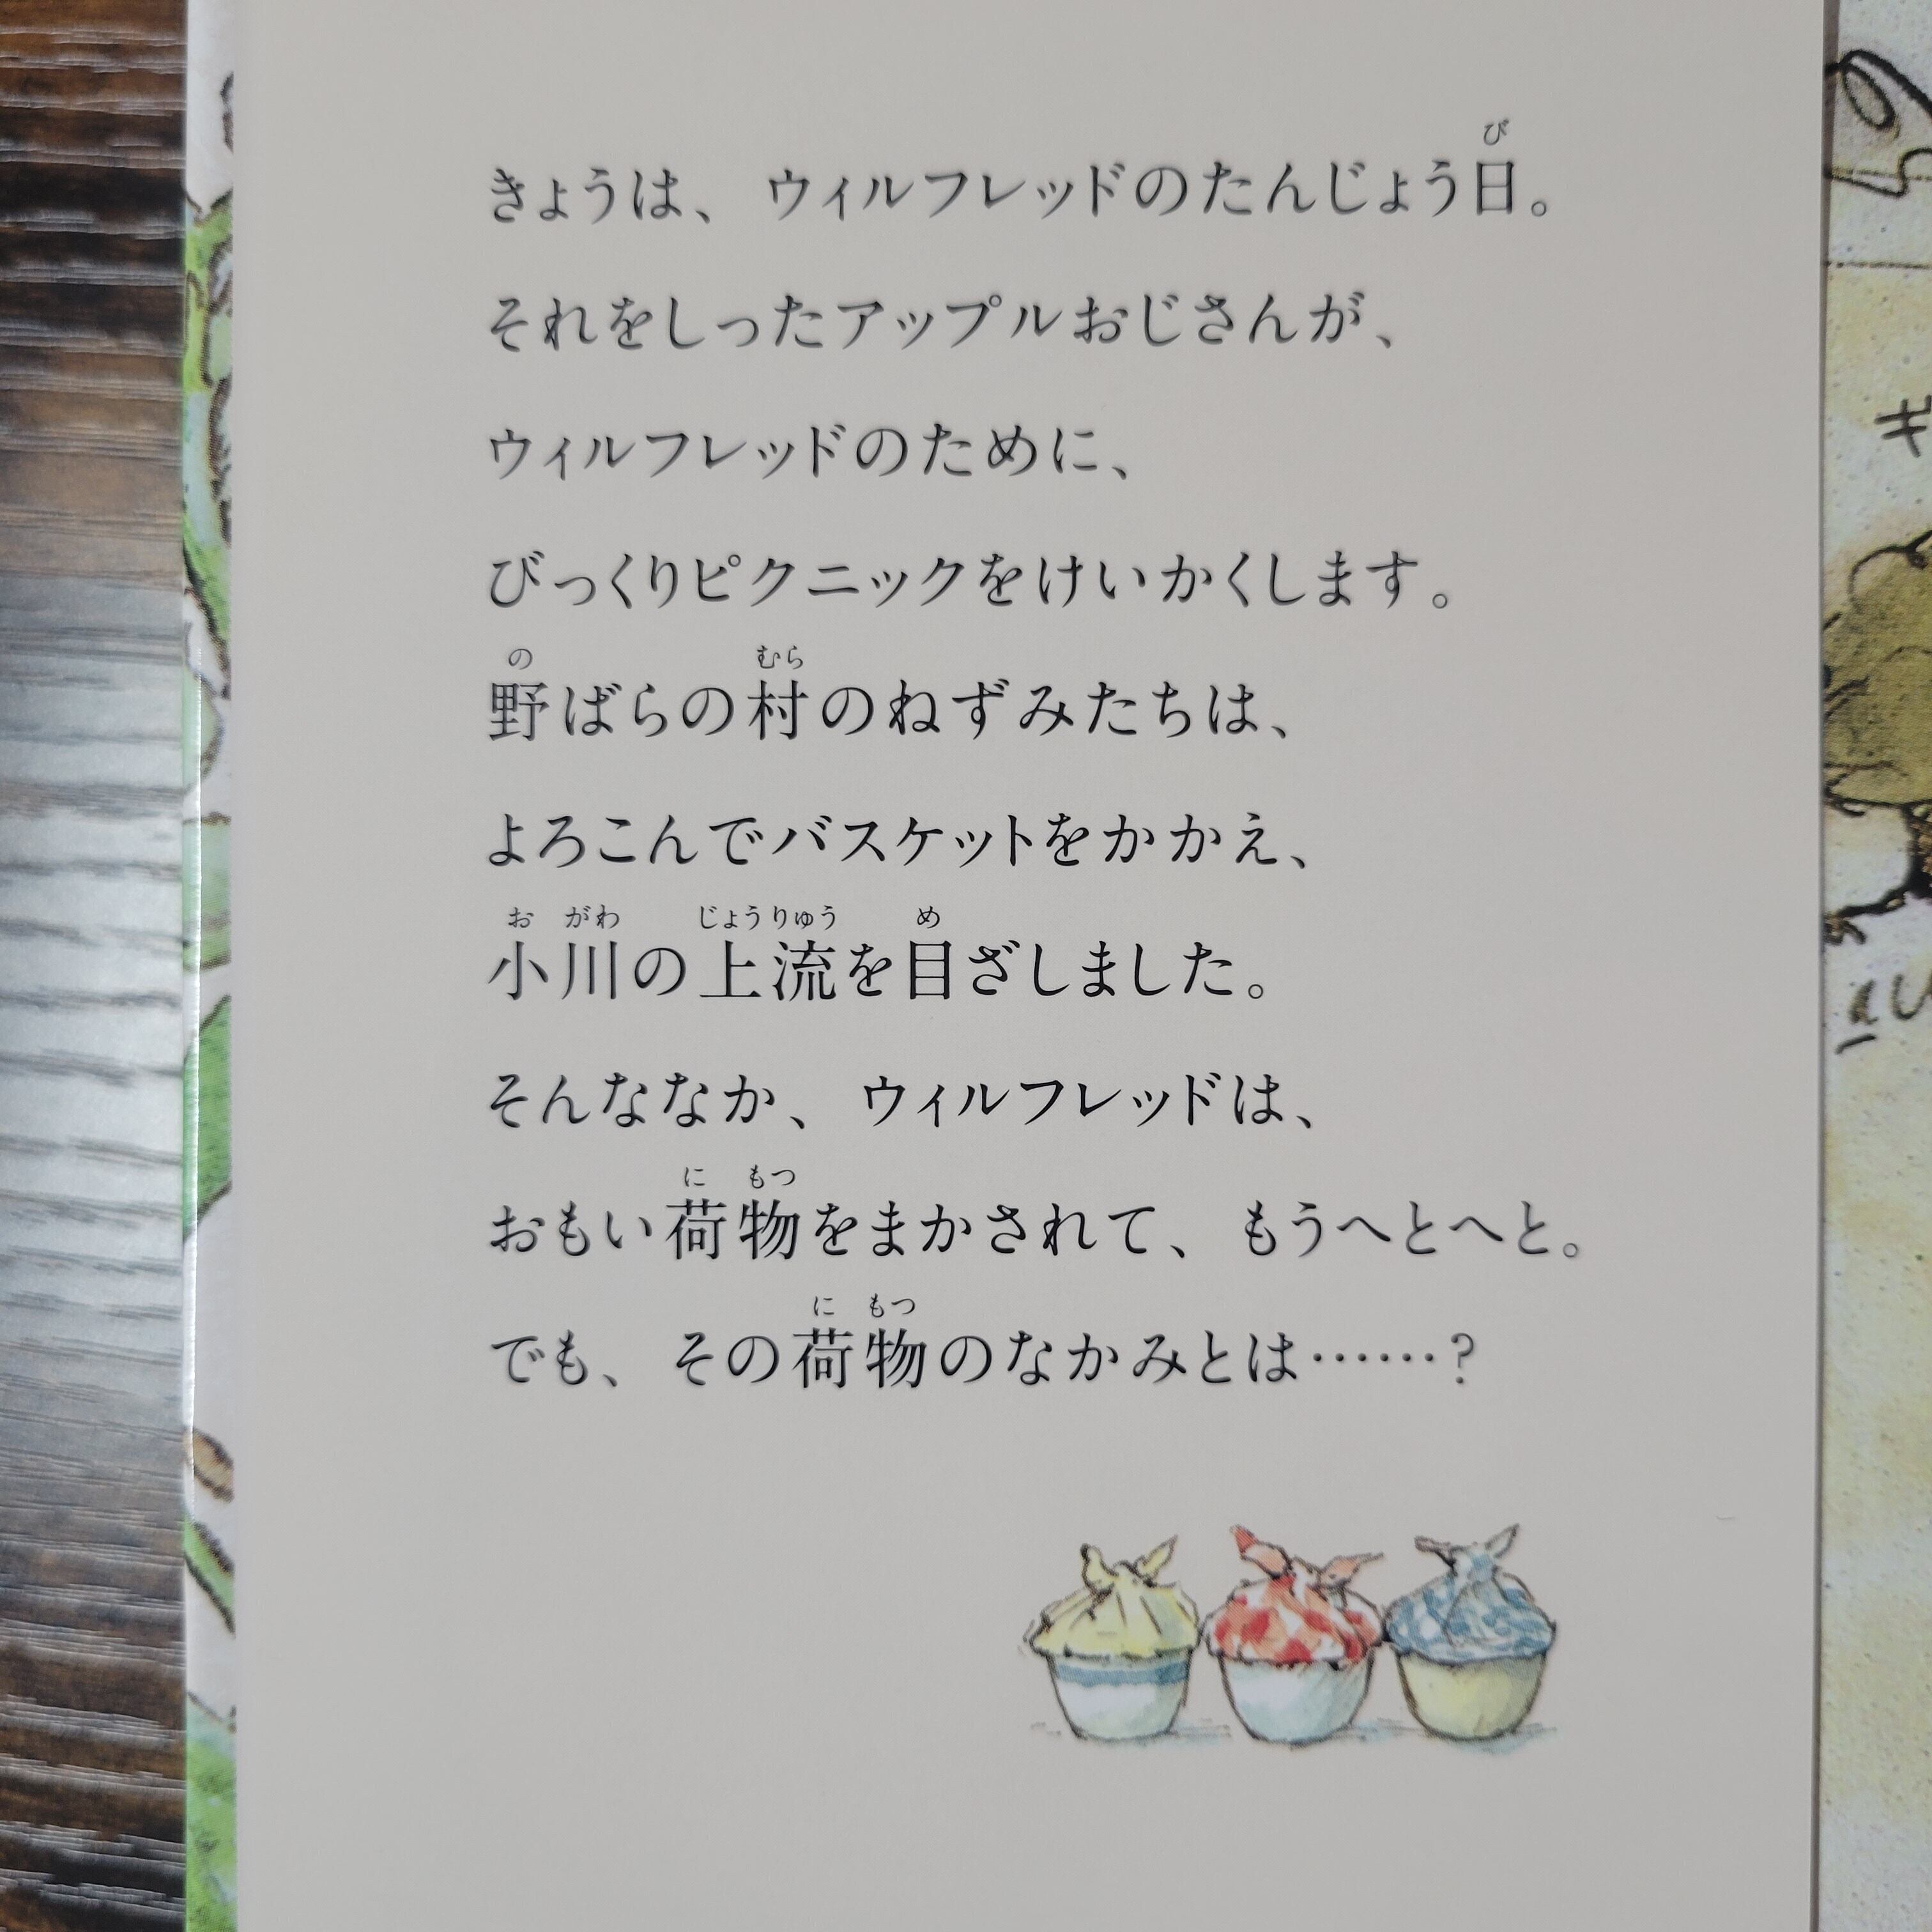 きょうは、ウィルフレッドのたんじょう日。
それをしったアップルおじさんが、
ウィルフレッドのために、
びっくりピクニックをけいかくします。
野ばらの村のねずみたちは、
よろこんでバスケットをかかえ、
小川の上流を目ざしました。
そんななか、ウィルフレッドは、
おもい荷物をまかされて、もうへとへと。
でも、その荷物のなかみとは……?